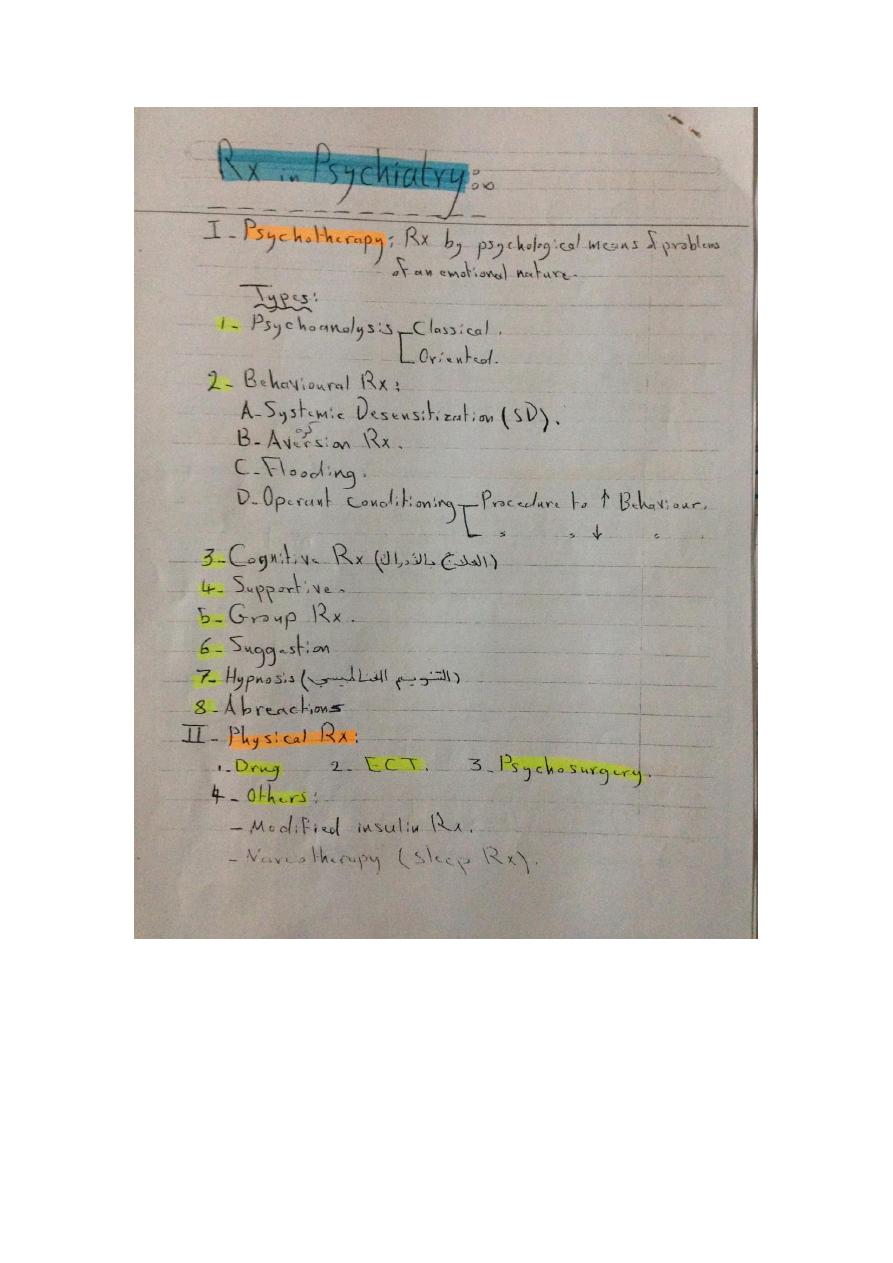 Rx in Psychiatry:
I - Psychotherapy: Rx by psychological means of problems
of an emotional nature.
Types:
1- Psychoanalysis Classical.
Oriented.
2- Behavioural Rx:
A- Systemic Desensitization (SD).
كره
B- Aversion Rx.
C- Flooding.
D- Operant conditioning Procedure to ↑ Behaviour.
" " ↓ "
3- Cognitive Rx (العلاج بالادراك)
4- Supportive.
5- Group Rx.
6- Suggestion
7- Hypnosis (التنويم المغناطيسي)
8- Abreactions
II - Physical Rx:
1. Drug 2- ECT. 3- Psychosurgery.
4- Others:
- Modified insulin Rx.
- Narcotherapy (Sleep Rx).